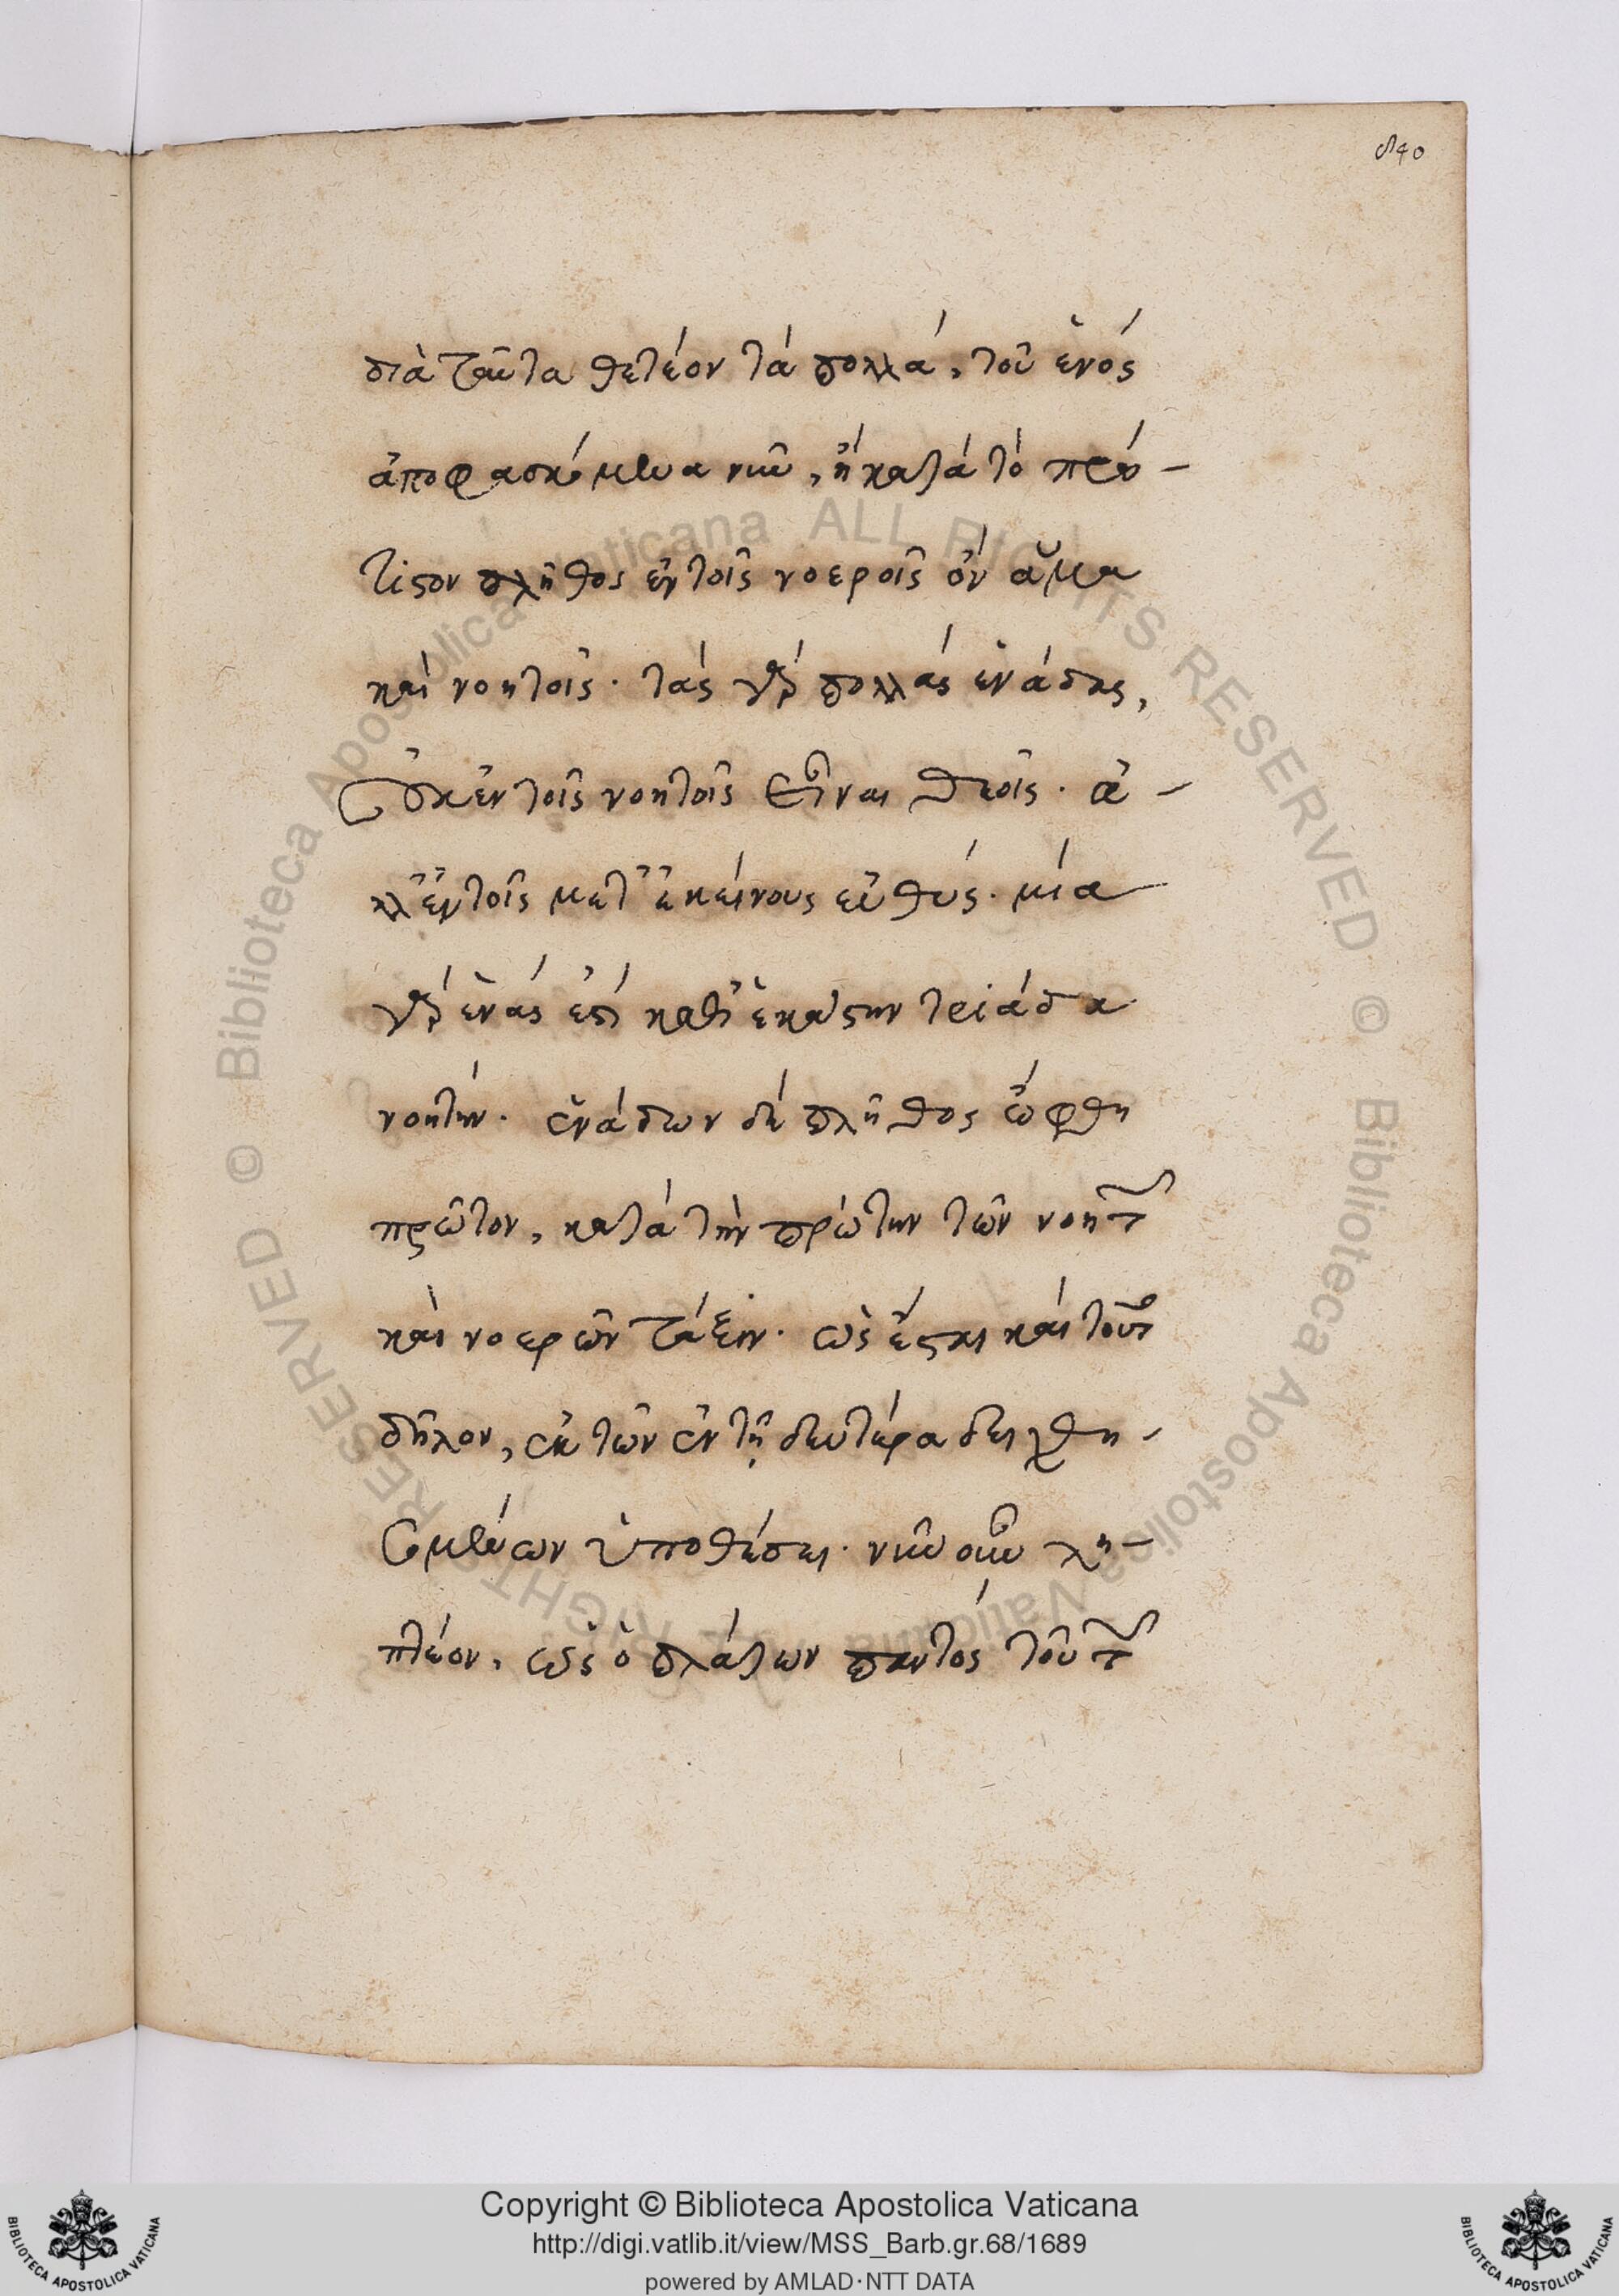 840
διὰ ταῦτα θετέον τὰ πολλά, τοῦ ἑνός
ἀποφασκόμενα νῦν, ἢ κατὰ τὸ πρώ-
τιστον πλῆθος ἐν τοῖς νοεροῖς ὂν ἅμα
καὶ νοητοῖς· τὰς γὰρ πολλὰς ἑνάδας,
οὐκ ἐν τοῖς νοητοῖς εἶναι θεοῖς· ἀ-
λλ' ἐν τοῖς μετ' ἐκείνους εὐθύς· μία
γὰρ ἑνάς ἐστι καθ' ἑκάστην τριάδα
νοητήν· ἑνάδων δὲ πλῆθος ὤφθη
πρῶτον, κατὰ τὴν πρώτην τῶν νοητῶν
καὶ νοερῶν τάξιν· ὡς ἔσται καὶ τοῦτο
δῆλον, ἐκ τῶν ἐν τῇ δευτέρα δειχθη-
σομένων ὑποθέσει· νῦν οὖν λη-
πτέον, ὡς ὁ πλάτων παντὸς τοῦ τῶν
Copyright © Biblioteca Apostolica Vaticana
http://digi.vatlib.it/view/MSS_Barb.gr.68/1689
powered by AMLAD·NTT DATA
BIBLIOTECA APOSTOLICA VATICANA
BIBLIOTECA APOSTOLICA VATICANA
© Biblioteca Apostolica Vaticana ALL RIGHTS RESERVED © Biblioteca Apostolica Vaticana ALL RIGHTS RESERVED